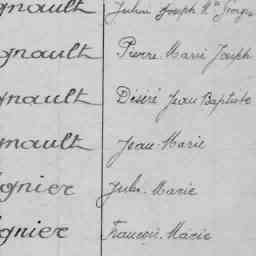 gnault Julien Joseph Mie Georges
gnault Pierre Marie Joseph
gnault Désiré Jean Baptiste
gnault Jean Marie
gnier Jules Marie
gnier François Marie